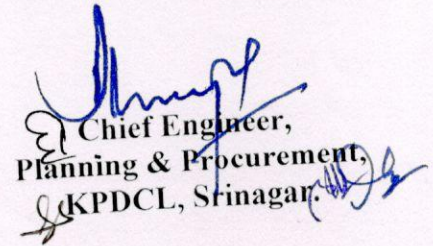 Chief Engineer,
Planning & Procurement,
KPDCL, Srinagar.